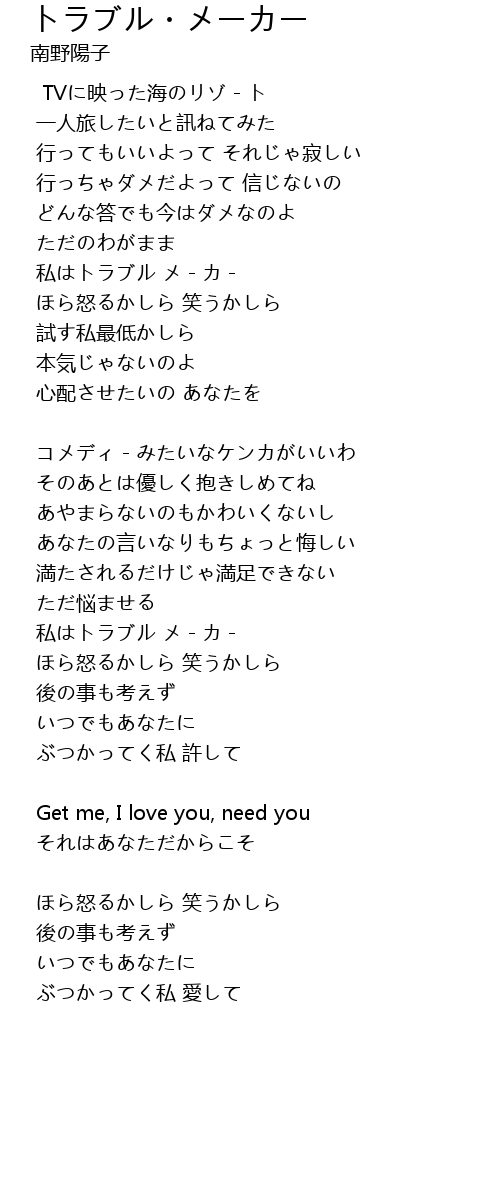 トラブル・メーカー
南野陽子
TVに映った海のリゾ - ト
一人旅したいと訊ねてみた
行ってもいいよって それじゃ寂しい
行っちゃダメだよって 信じないの
どんな答でも今はダメなのよ
ただのわがまま
私はトラブル メ - カ -
ほら怒るかしら 笑うかしら
試す私最低かしら
本気じゃないのよ
心配させたいの あなたを
コメディ - みたいなケンカがいいわ
そのあとは優しく抱きしめてね
あやまらないのもかわいくないし
あなたの言いなりもちょっと悔しい
満たされるだけじゃ満足できない
ただ悩ませる
私はトラブル メ - カ -
ほら怒るかしら 笑うかしら
後の事も考えず
いつでもあなたに
ぶつかってく私 許して
Get me, I love you, need you
それはあなただからこそ
ほら怒るかしら 笑うかしら
後の事も考えず
いつでもあなたに
ぶつかってく私 愛して